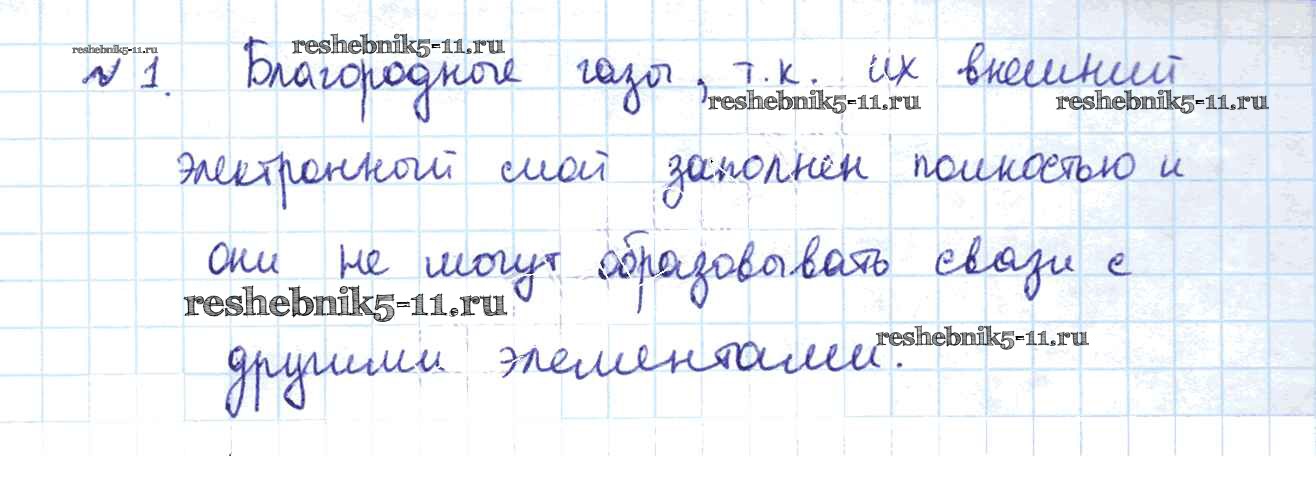 reshebnik5-11.ru
reshebnik5-11.ru
№ 1. Благородные газы, т.к. их внешний
reshebnik5-11.ru
reshebnik5-11.ru
электронный слой заполнен полностью и
они не могут образовывать связи с
reshebnik5-11.ru
reshebnik5-11.ru
другими элементами.